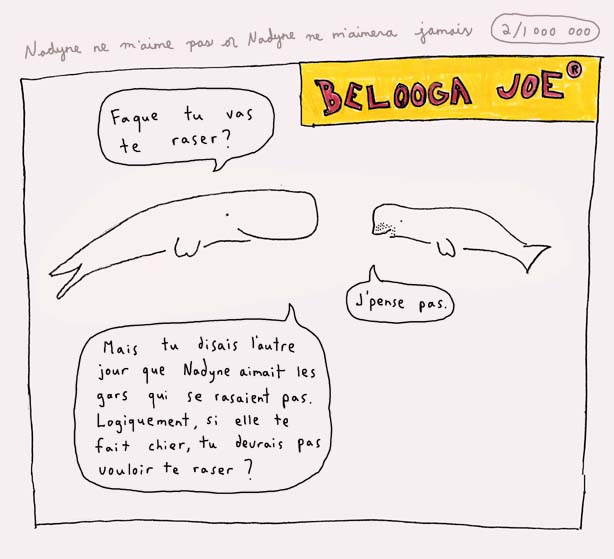 Nadyne ne m'aime pas or Nadyne ne m'aimera jamais 2/1 000 000
BELOOGA JOE®
Faque tu vas
te raser?
J'pense pas.
Mais tu disais l'autre
jour que Nadyne aimait les
gars qui se rasaient pas.
Logiquement, si elle te
fait chier, tu devrais pas
vouloir te raser?